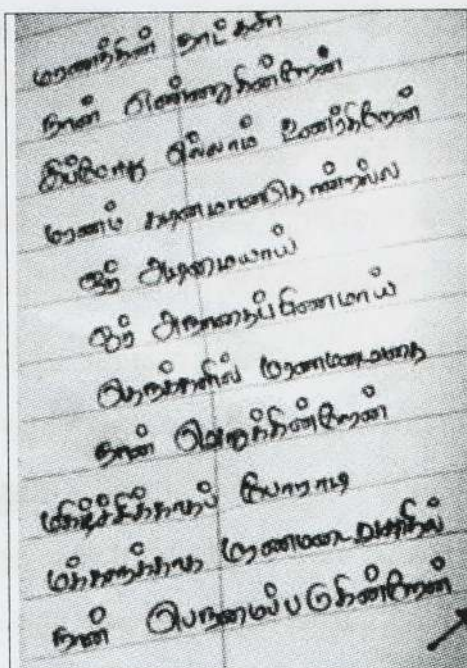 மரணத்தின் நாட்களை
நான் எண்ணுகின்றேன்
இப்போது எல்லாம் உணர்கிறேன்
மரணம் கடினமானதென்றல்ல
ஓர் அடிமையாய்
ஓர் அநாதைப் பிணமாய்
தெருக்களில் மரணமடைவதை
நான் வெறுக்கின்றேன்
மகிழ்ச்சிக்காகப் போராடி
மக்களுக்காக மரணமடைவதில்
நான் பெருமைப்படுகின்றேன்